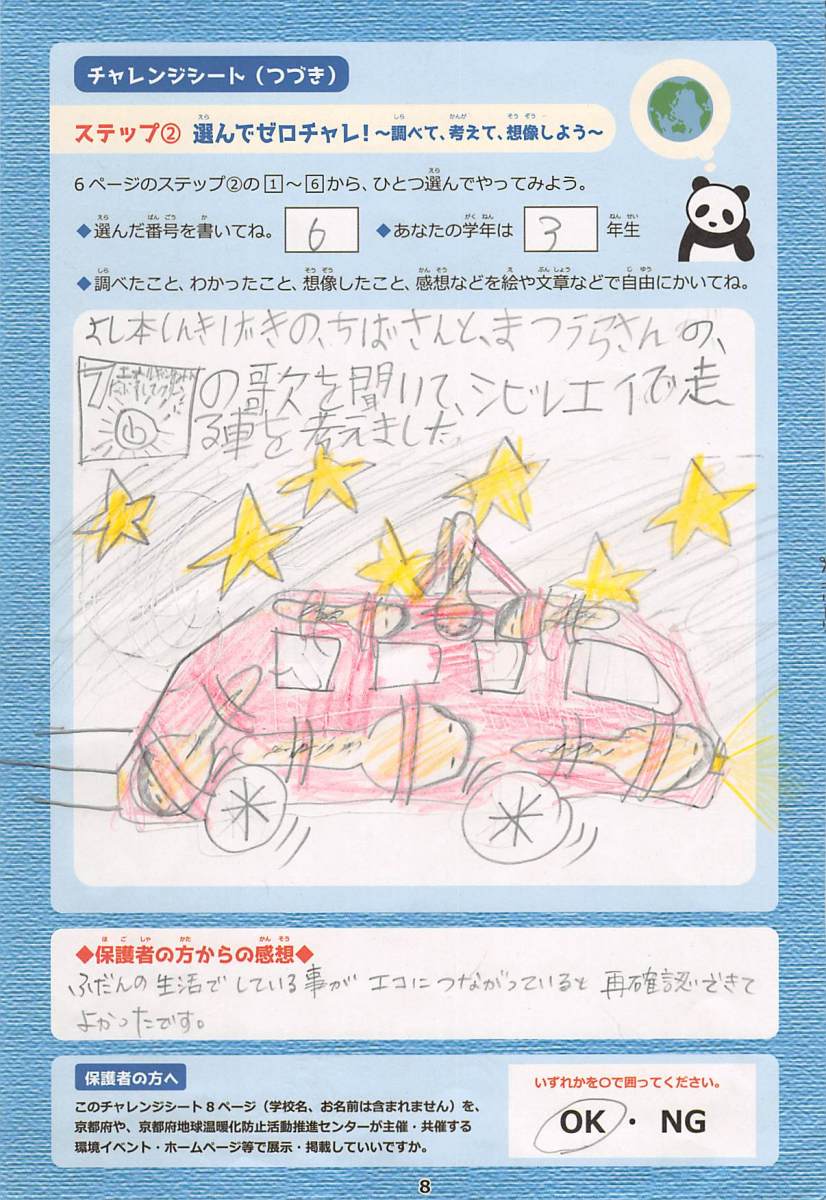 チャレンジシート（つづき）
ステップ② 選んでゼロチャレ！～調べて、考えて、想像しよう～
6ページのステップ②の1～6から、ひとつ選んでやってみよう。
◆選んだ番号を書いてね。 6 ◆あなたの学年は 3 年生
◆調べたこと、わかったこと、想像したこと、感想などを絵や文章などで自由にかいてね。
よし本しんきげきの、ちばさんと、まつうらさんの、
の歌を聞いて、シビレエイで走
る車を考えました。
◆保護者の方からの感想◆
ふだんの生活でしている事が エコにつながっていると 再確認できて
よかったです。
保護者の方へ
このチャレンジシート8ページ（学校名、お名前は含まれません）を、
京都府や、京都府地球温暖化防止活動推進センターが主催・共催する
環境イベント・ホームページ等で展示・掲載していいですか。
いずれかを○で囲ってください。
OK・NG
8